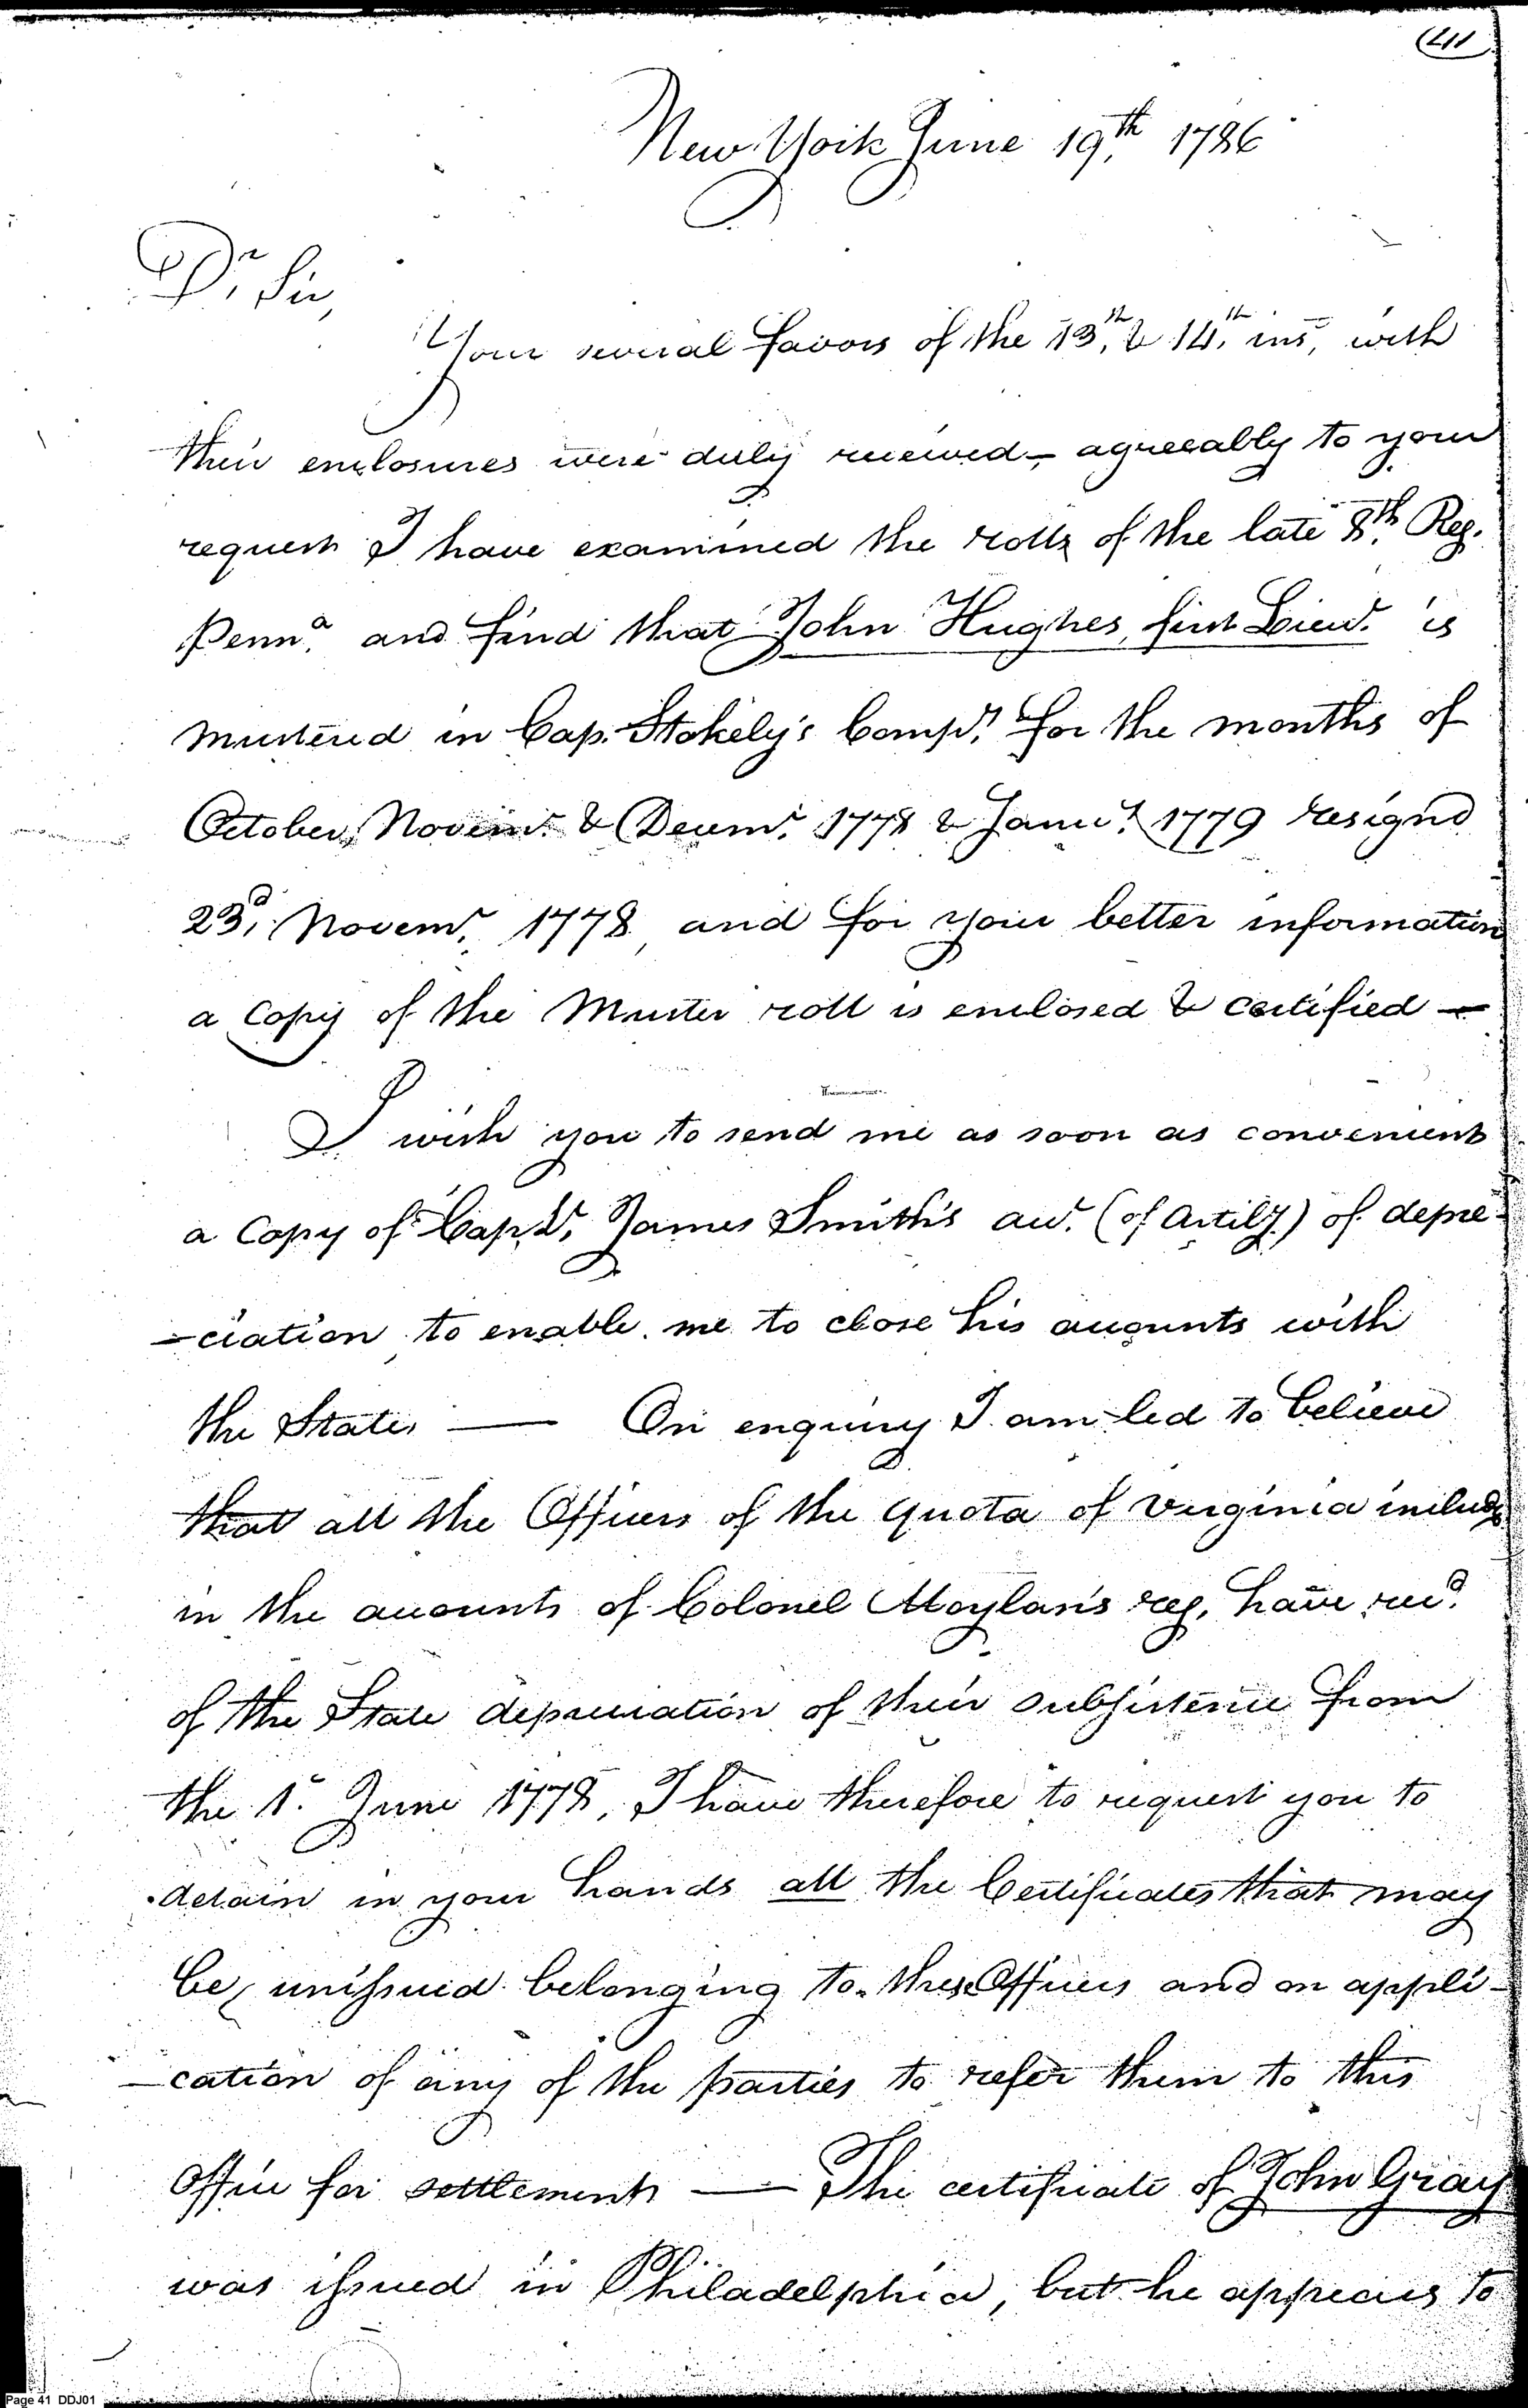 (41
New York June 19th, 1786
Dr Sir,
Your several favors of the 13th, & 14th, ins, with
their enclosures were duly received - agreeably to your
request I have examined the rolls of the late 8th, Reg.
Penna. and find that John Hughes, first Lieut. is
mustered in Cap. Stokely's Compy. for the months of
October, Novemr. & Decemr. 1778 & Januy. 1779 resignd
23d, Novemr, 1778, and for your better information
a Copy of the Muster roll is enclosed & certified —
I wish you to send me as soon as convenient
a Copy of Capt. James Smith's acct. (of Artily.) of depre-
-ciation, to enable me to close his accounts with
the State. — On enquiry I am led to believe
that all the Officers of the quota of Virginia includg
in the accounts of Colonel Moylan's reg. have recd.
of the State depreciation of their subsistence from
the 1st. June 1778, I have therefore to request you to
detain in your hands all the Certificates that may
be, unissued belonging to these Officers and on appli-
-cation of any of the parties to refer them to this
Office for settlement — The certificate of John Gray
was issued in Philadelphia, but he appears to
Page 41 DDJ01